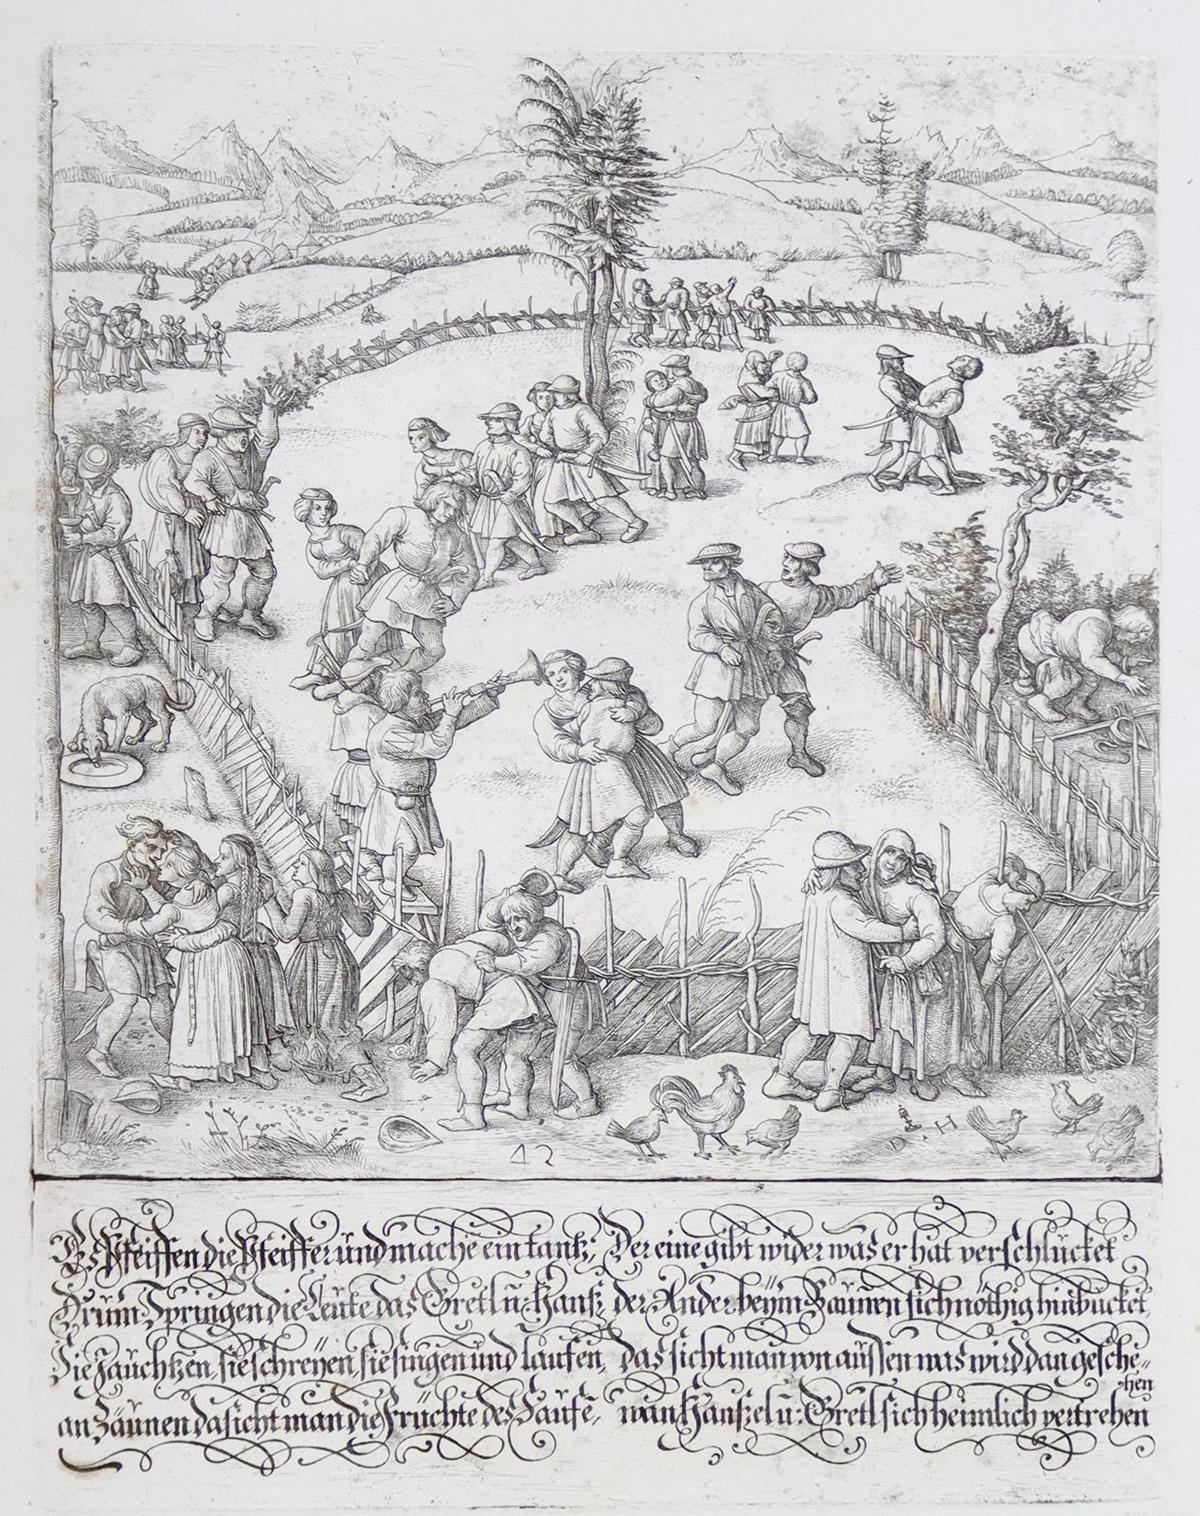 12
D . H
Es Pfeiffen die Pfeiffer und mache ein tantz, Der eine gibt wider was er hat verschlucket
Drum Springen die Leute das Gretl u: Hanß, der Ander beÿm Zaunen sich nöthig hinbucket,
Die Jauchtzen, sie schreÿen, sie singen und laufen, das sicht man von aussen was wird dan gesche=
hen
an Zäunen da sicht man die Früchte des Saufe, wan Hanßel u: Gretl sich heimlich vertrehen